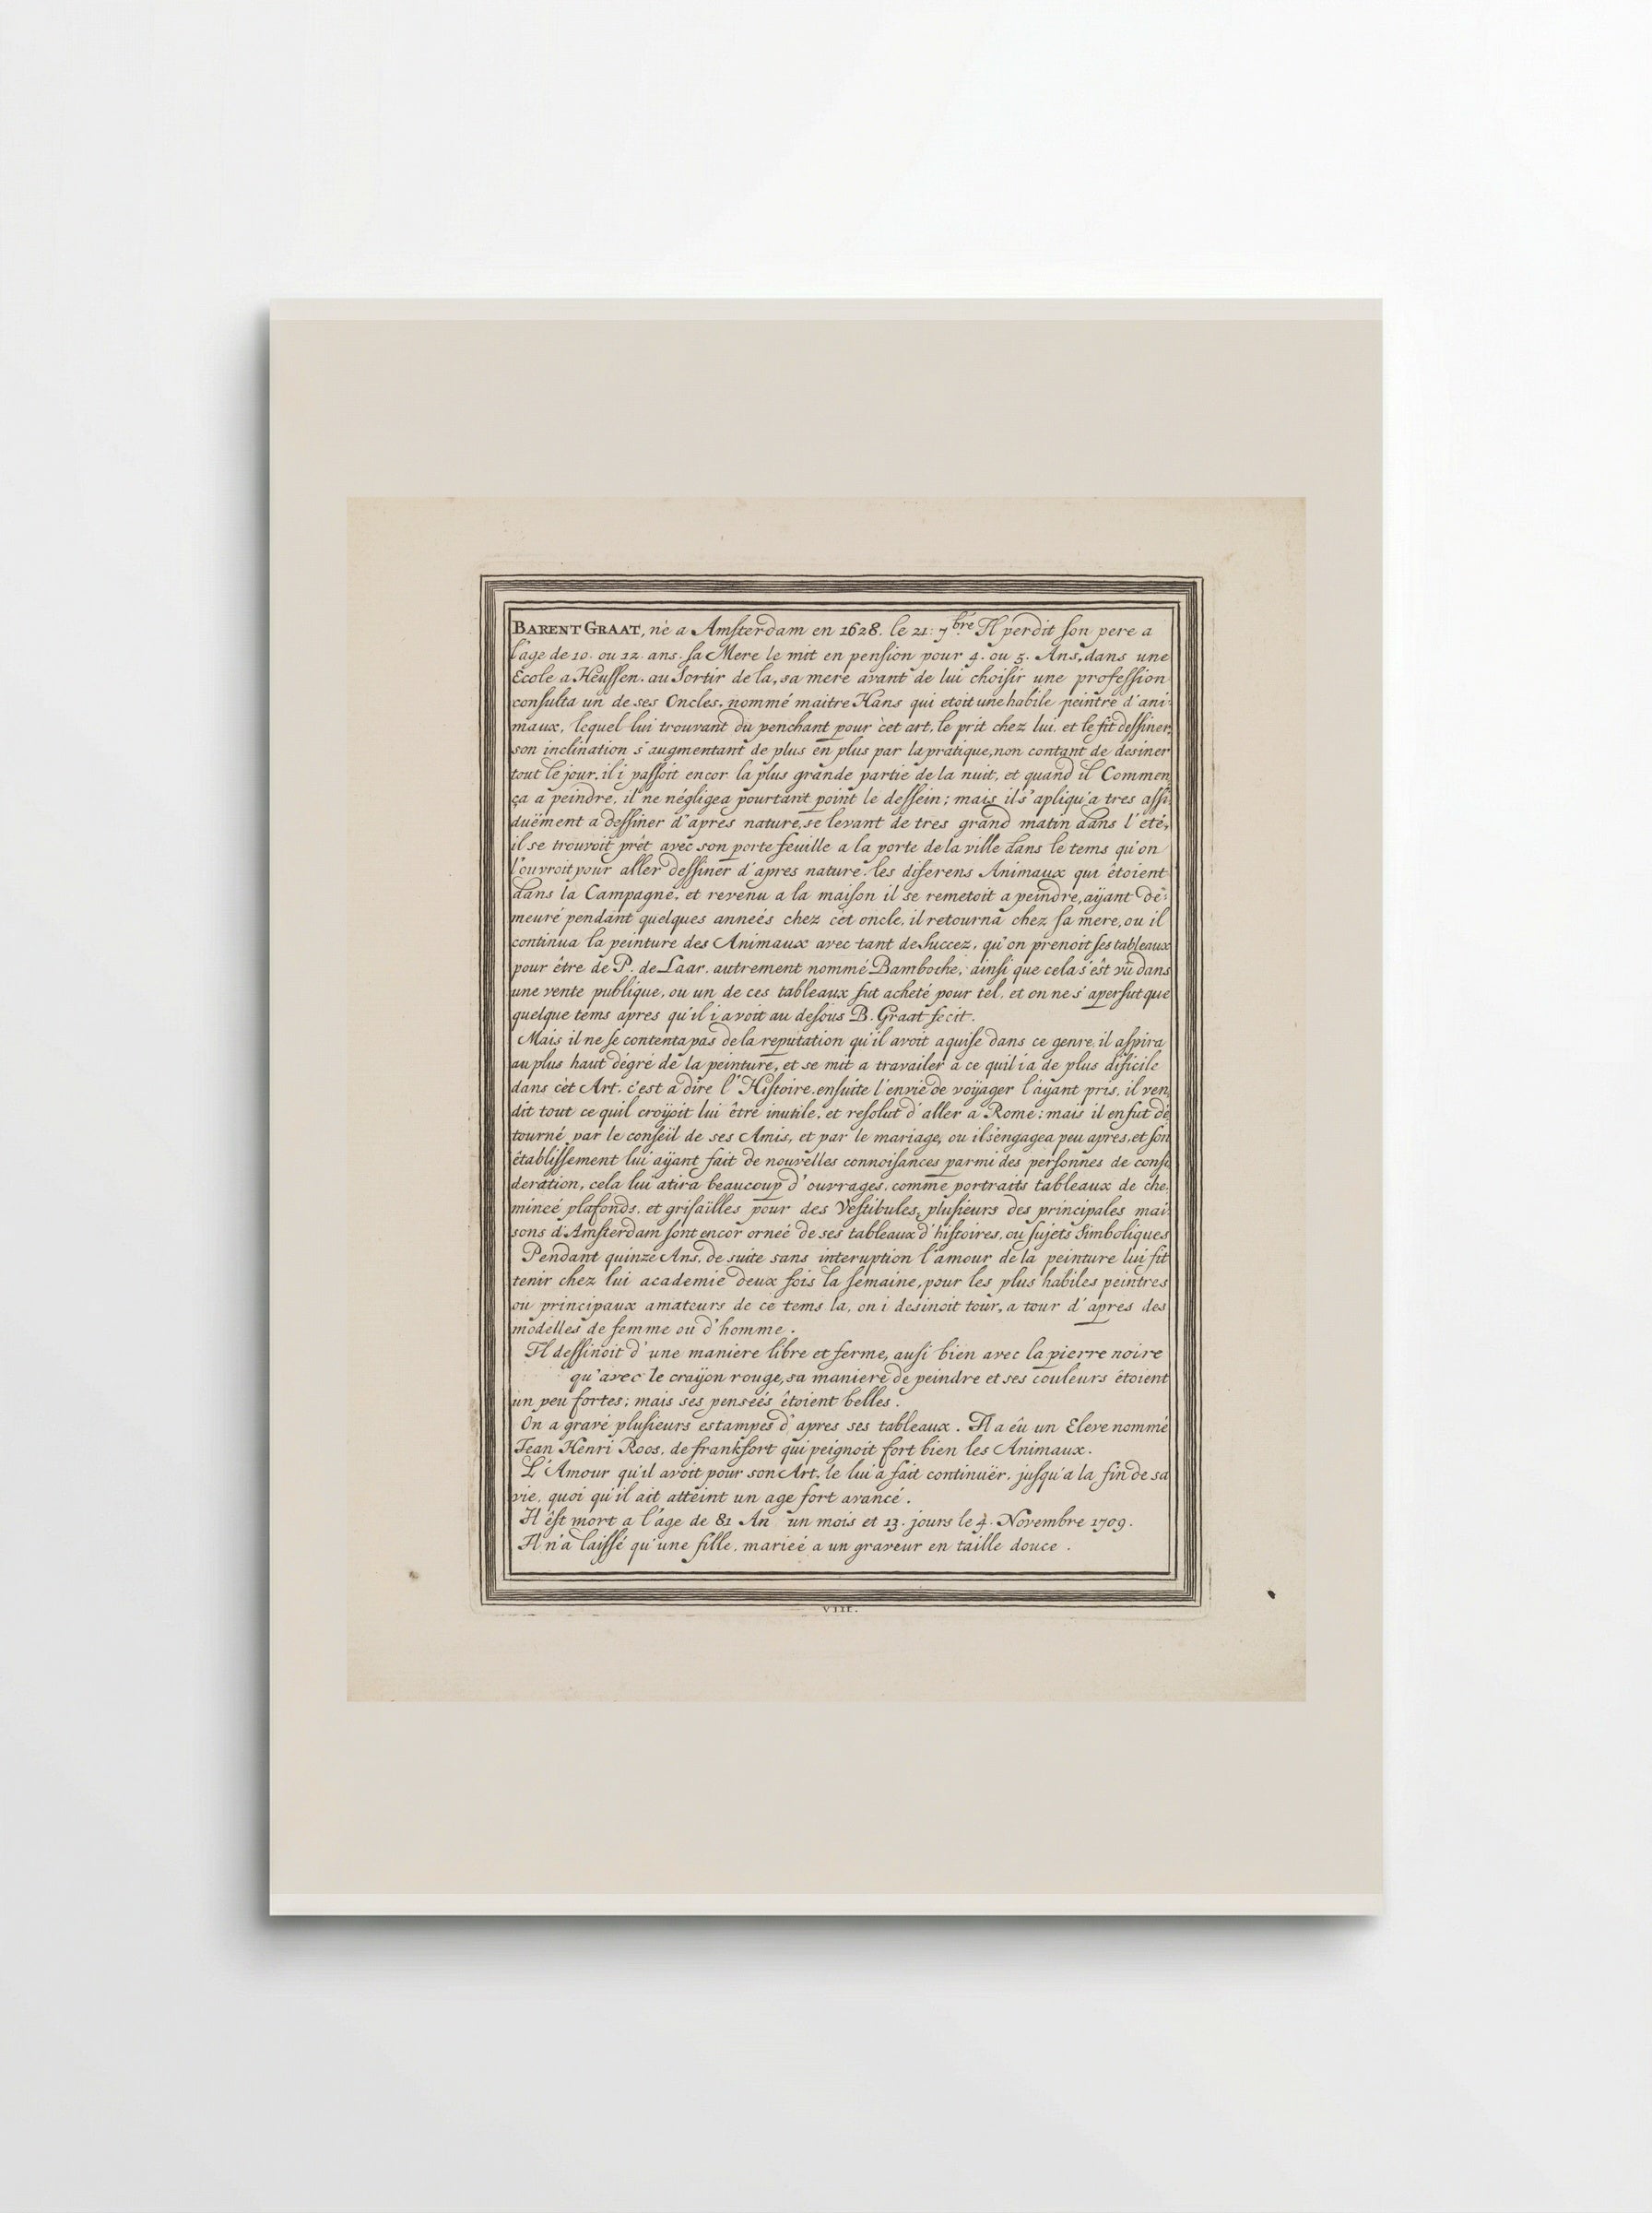 BARENT GRAAT, né a Amsterdam en 1628. le 21. 7bre Il perdit son pere a
l'age de 10. ou 12. ans. sa Mere le mit en pension pour 4. ou 5. Ans, dans une
Ecole a Heussen. au Sortir de la, sa mere avant de lui choisir une profession
consulta un de ses Oncles, nommé maitre Hans qui etoit une habile peintre d'ani-
maux, lequel lui trouvant du penchant pour cèt art, le prit chez lui, et le fit dessiner,
son inclination s'augmentant de plus en plus par la pratique, non contant de desiner
tout le jour, il i passoit encor la plus grande partie de la nuit, et quand il Commen
ça a peindre, il ne négligea pourtant point le dessein; mais il s'apliqu'a tres assi-
duëment a dessiner d'apres nature, se levant de tres grand matin dans l'eté,
il se trouvoit prêt avec son porte feuille a la porte de la ville dans le tems qu'on
l'ouvroit pour aller dessiner d'apres nature les diferens Animaux qui êtoient
dans la Campagne, et revenu a la maison il se remetoit a peindre, aÿant de-
meuré pendant quelques anneés chez cèt oncle, il retourna chez sa mere, ou il
continua la peinture des Animaux avec tant de Succez, qu'on prenoit ses tableaux
pour être de P. de Laar, autrement nommé Bamboche, ainsi que cela s'êst vû dans
une vente publique, ou un de ces tableaux fut acheté pour tel, et on ne s'apersut que
quelque tems apres qu'il i avoit au desous B. Graat fecit.
Mais il ne se contenta pas de la reputation qu'il avoit aquise dans ce genre, il aspira
au plus haut dégré de la peinture, et se mit a travailer a ce quil i a de plus dificile
dans cèt Art, c'est a dire l'Histoire, ensuite l'envie de voÿager l'aÿant pris, il ven
dit tout ce quil croÿoit lui être inutile, et resolut d'aller a Rome; mais il en fut dé
tourné par le conseil de ses Amis, et par le mariage, ou il s'engagea peu apres, et son
êtablissement lui aÿant fait de nouvelles connoisances parmi des personnes de consi
deration, cela lui atira beaucoup d'ouvrages, comme portraits tableaux de che-
mineé plafonds, et grisaïlles pour des Vestibules, plusieurs des principales mai-
sons d'Amsterdam sont encor orneé de ses tableaux d'histoires, ou sujets Simboliques
Pendant quinze Ans, de suite sans interuption l'amour de la peinture lui fit
tenir chez lui academie deux fois la semaine, pour les plus habiles peintres
ou principaux amateurs de ce tems la, on i desinoit tour, a tour d'apres des
modelles de femme ou d'homme.
Il dessinoit d'une maniere libre et ferme, ausi bien avec la pierre noire
qu'avec le craÿon rouge, sa maniere de peindre et ses couleurs êtoient
un peu fortes; mais ses penseés êtoient belles.
On a gravé plusieurs estampes d'apres ses tableaux. Il a êu un Eleve nommé
Jean Henri Roos, de frankfort qui peignoit fort bien les Animaux.
L'Amour qu'il avoit pour son Art, le lui a fait continuër, jusqu'a la fin de sa
vie, quoi qu'il ait atteint un age fort avancé.
Il êst mort a l'age de 81 An un mois et 13. jours le 4. Novembre 1709.
Il n'a laissé qu'une fille, marieé a un graveur en taille douce.
VIII.